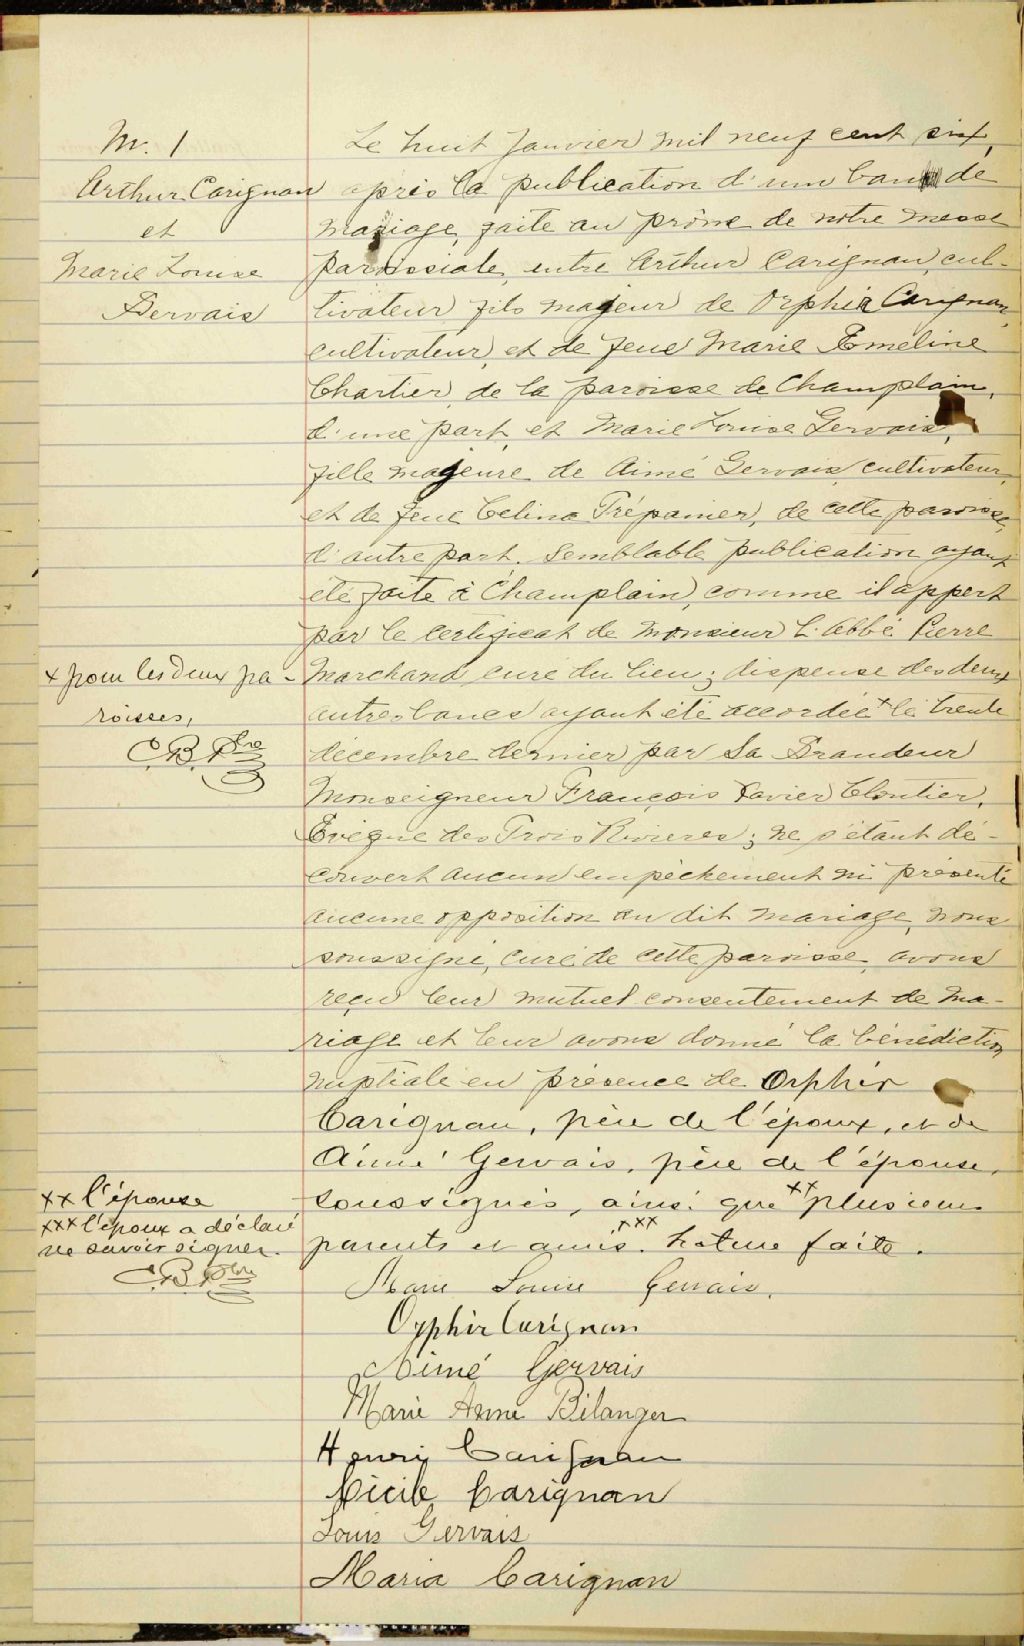 M. 1
Arthur Carignan
et
Marie Louise
Gervais
Le huit Janvier mil neuf cent six,
après la publication d'un ban de
mariage, faite au prône de notre messe
paroissiale, entre Arthur Carignan, cul-
tivateur fils majeur de Orphir Carignan,
cultivateur, et de feue Marie Emeline
Chartier, de la paroisse de Champlain,
d'une part, et Marie Louise Gervais,
fille majeure de Aimé Gervais, cultivateur,
et de feue Celina Trépanier, de cette paroisse,
d'autre part. Semblable publication ayant
été faite à Champlain, comme il appert
par le certificat de Monsieur L'abbé Pierre
Marchand curé du lieu; dispense des deux
autres bancs ayant été accordée x le trente
décembre dernier par Sa Grandeur
Monseigneur François Xavier Cloutier,
Evêque des Trois Rivieres; ne s'étant dé-
couvert aucun empêchement ni présenté
aucune opposition au dit mariage, nous
soussigné, curé de cette paroisse, avons
reçu leur mutuel consentement de ma-
riage et leur avons donné la bénédiction
nuptiale en présence de Orphir
Carignan, père de l'époux, et de
Aimé Gervais, père de l'épouse,
soussignés, ainsi que xx plusieurs
parents et amis. xxx Lecture faite.
x pour les deux pa-
roisses,
C. B. Ptre
xx l'épouse
xxx l'époux a déclaré
ne savoir signer.
C. B. Ptre
Marie Louise Gervais.
Orphir Carignan
Aimé Gervais
Marie Anne Bélanger
Henri Carignan
Cécile Carignan
Louis Gervais
Maria Carignan